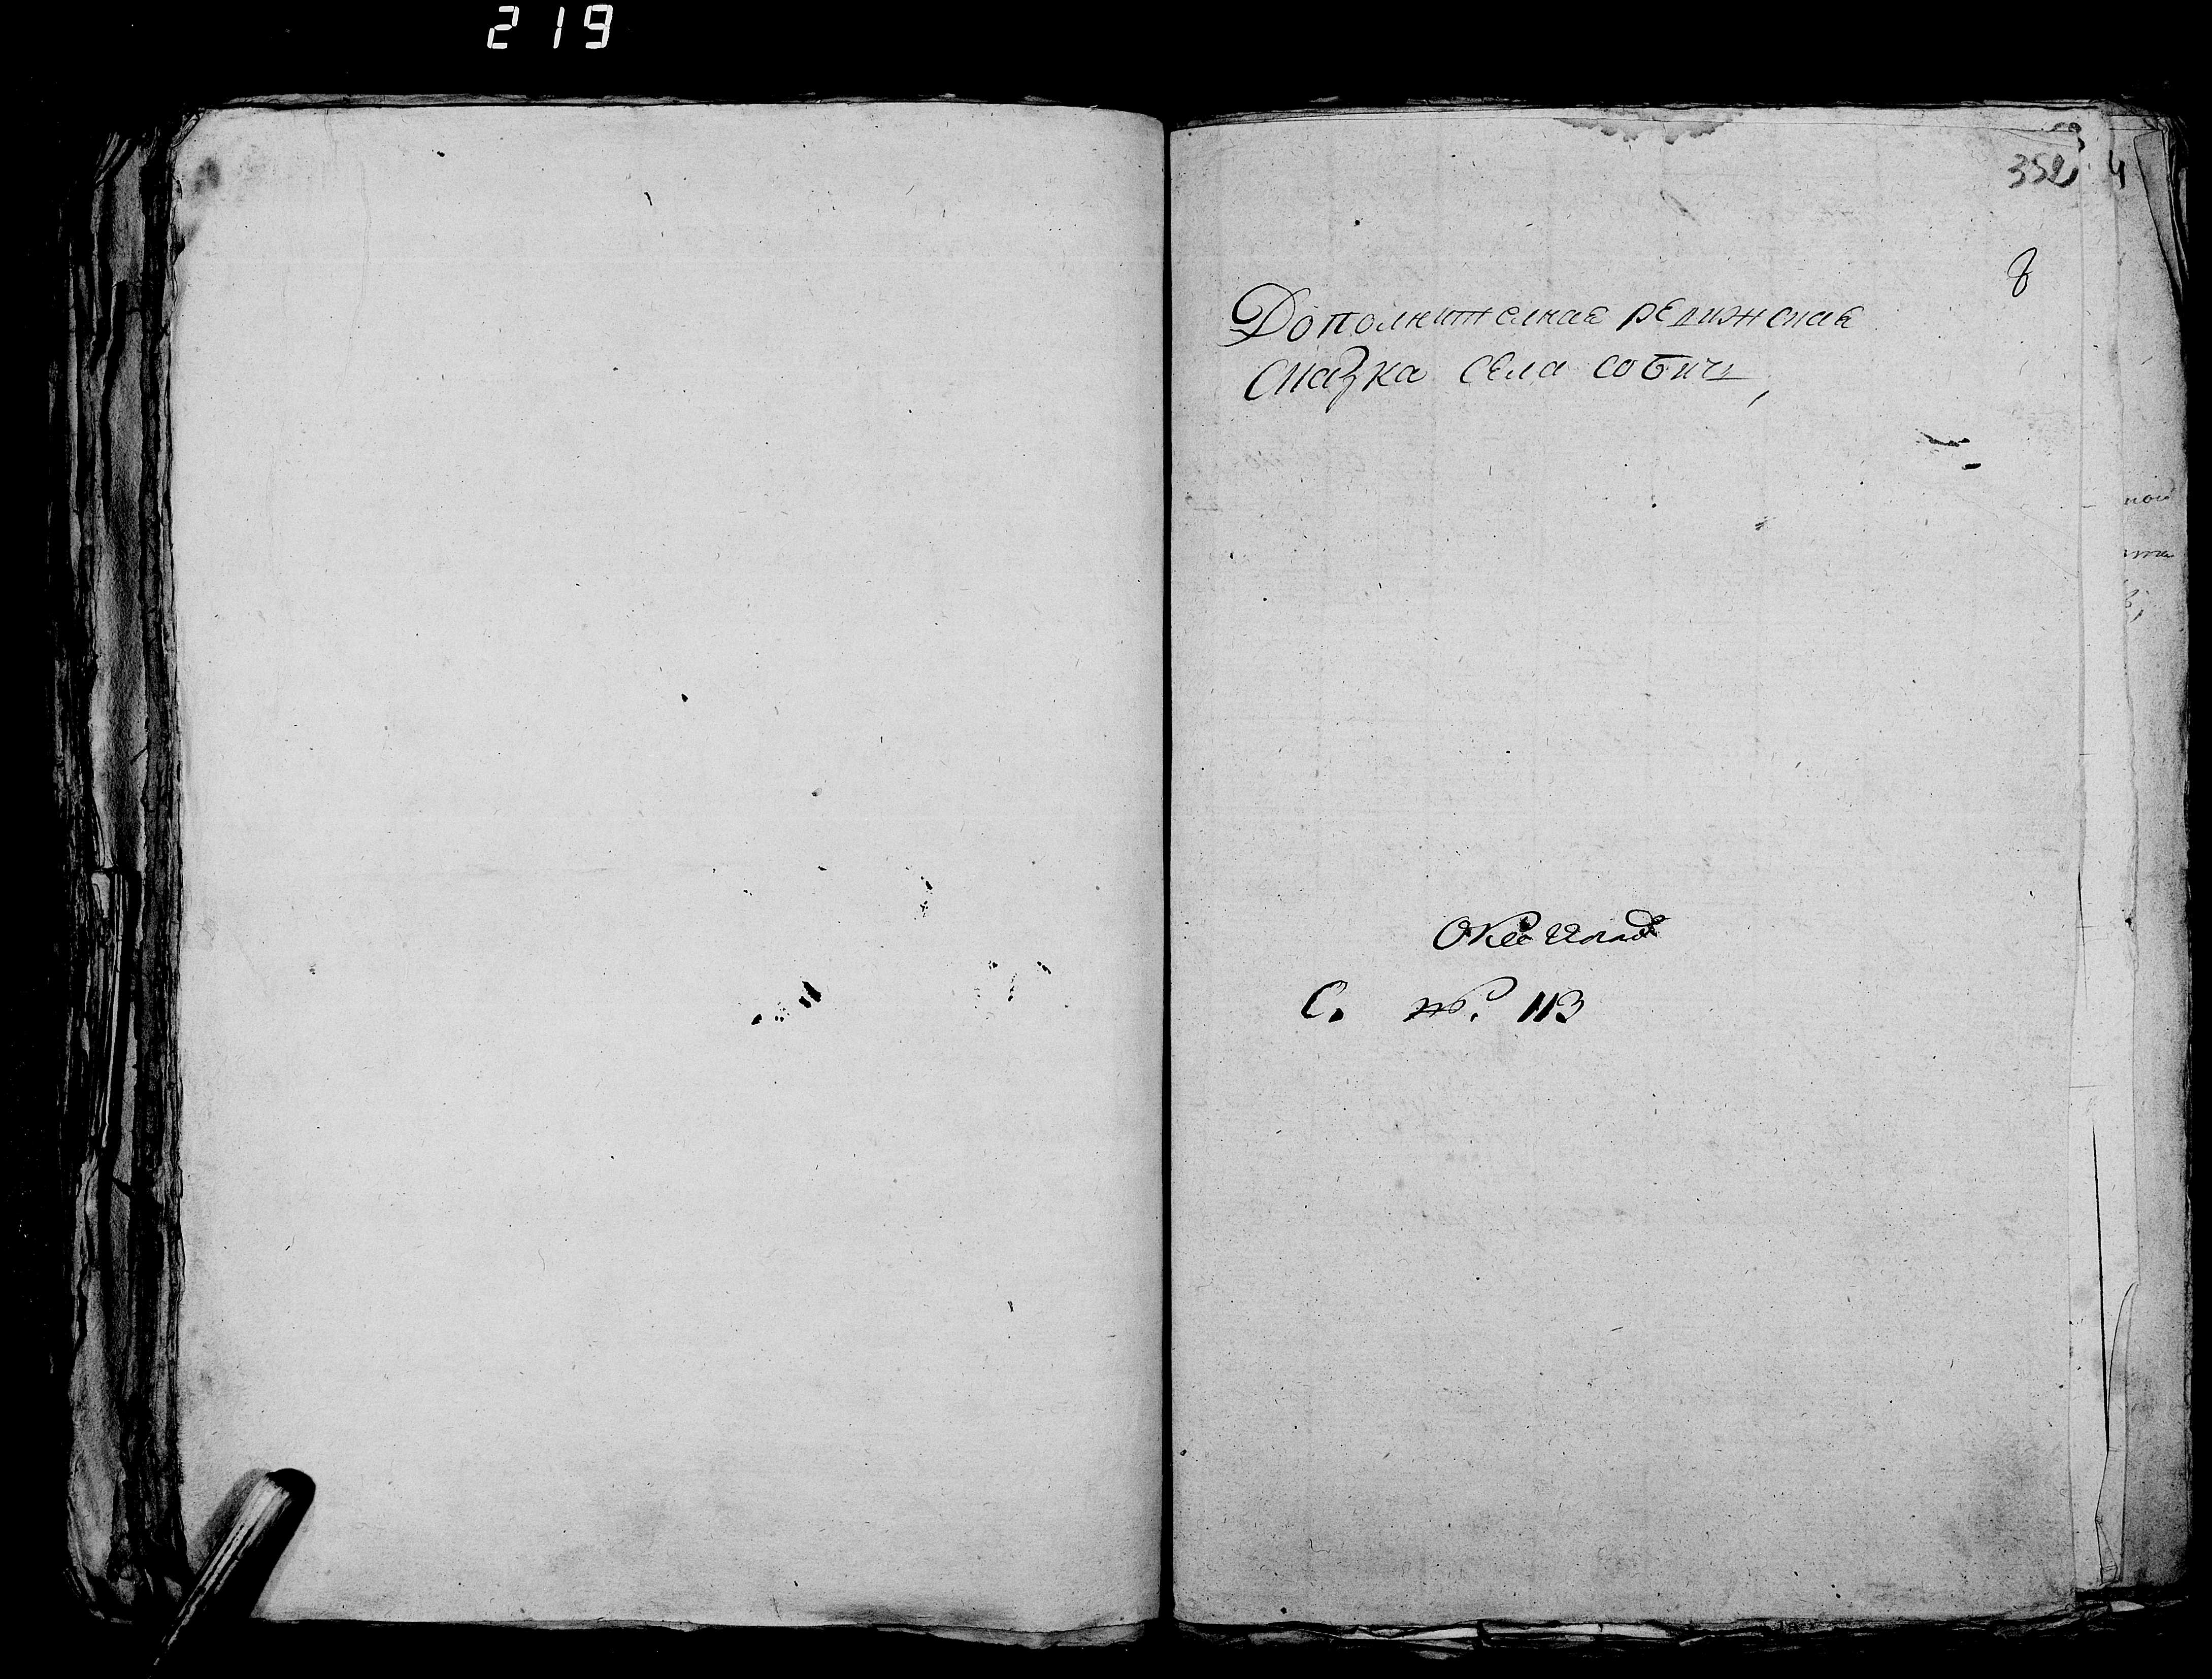 219
352
8
Дополнителная ревижская
сказка села собичь,
С. №. 113